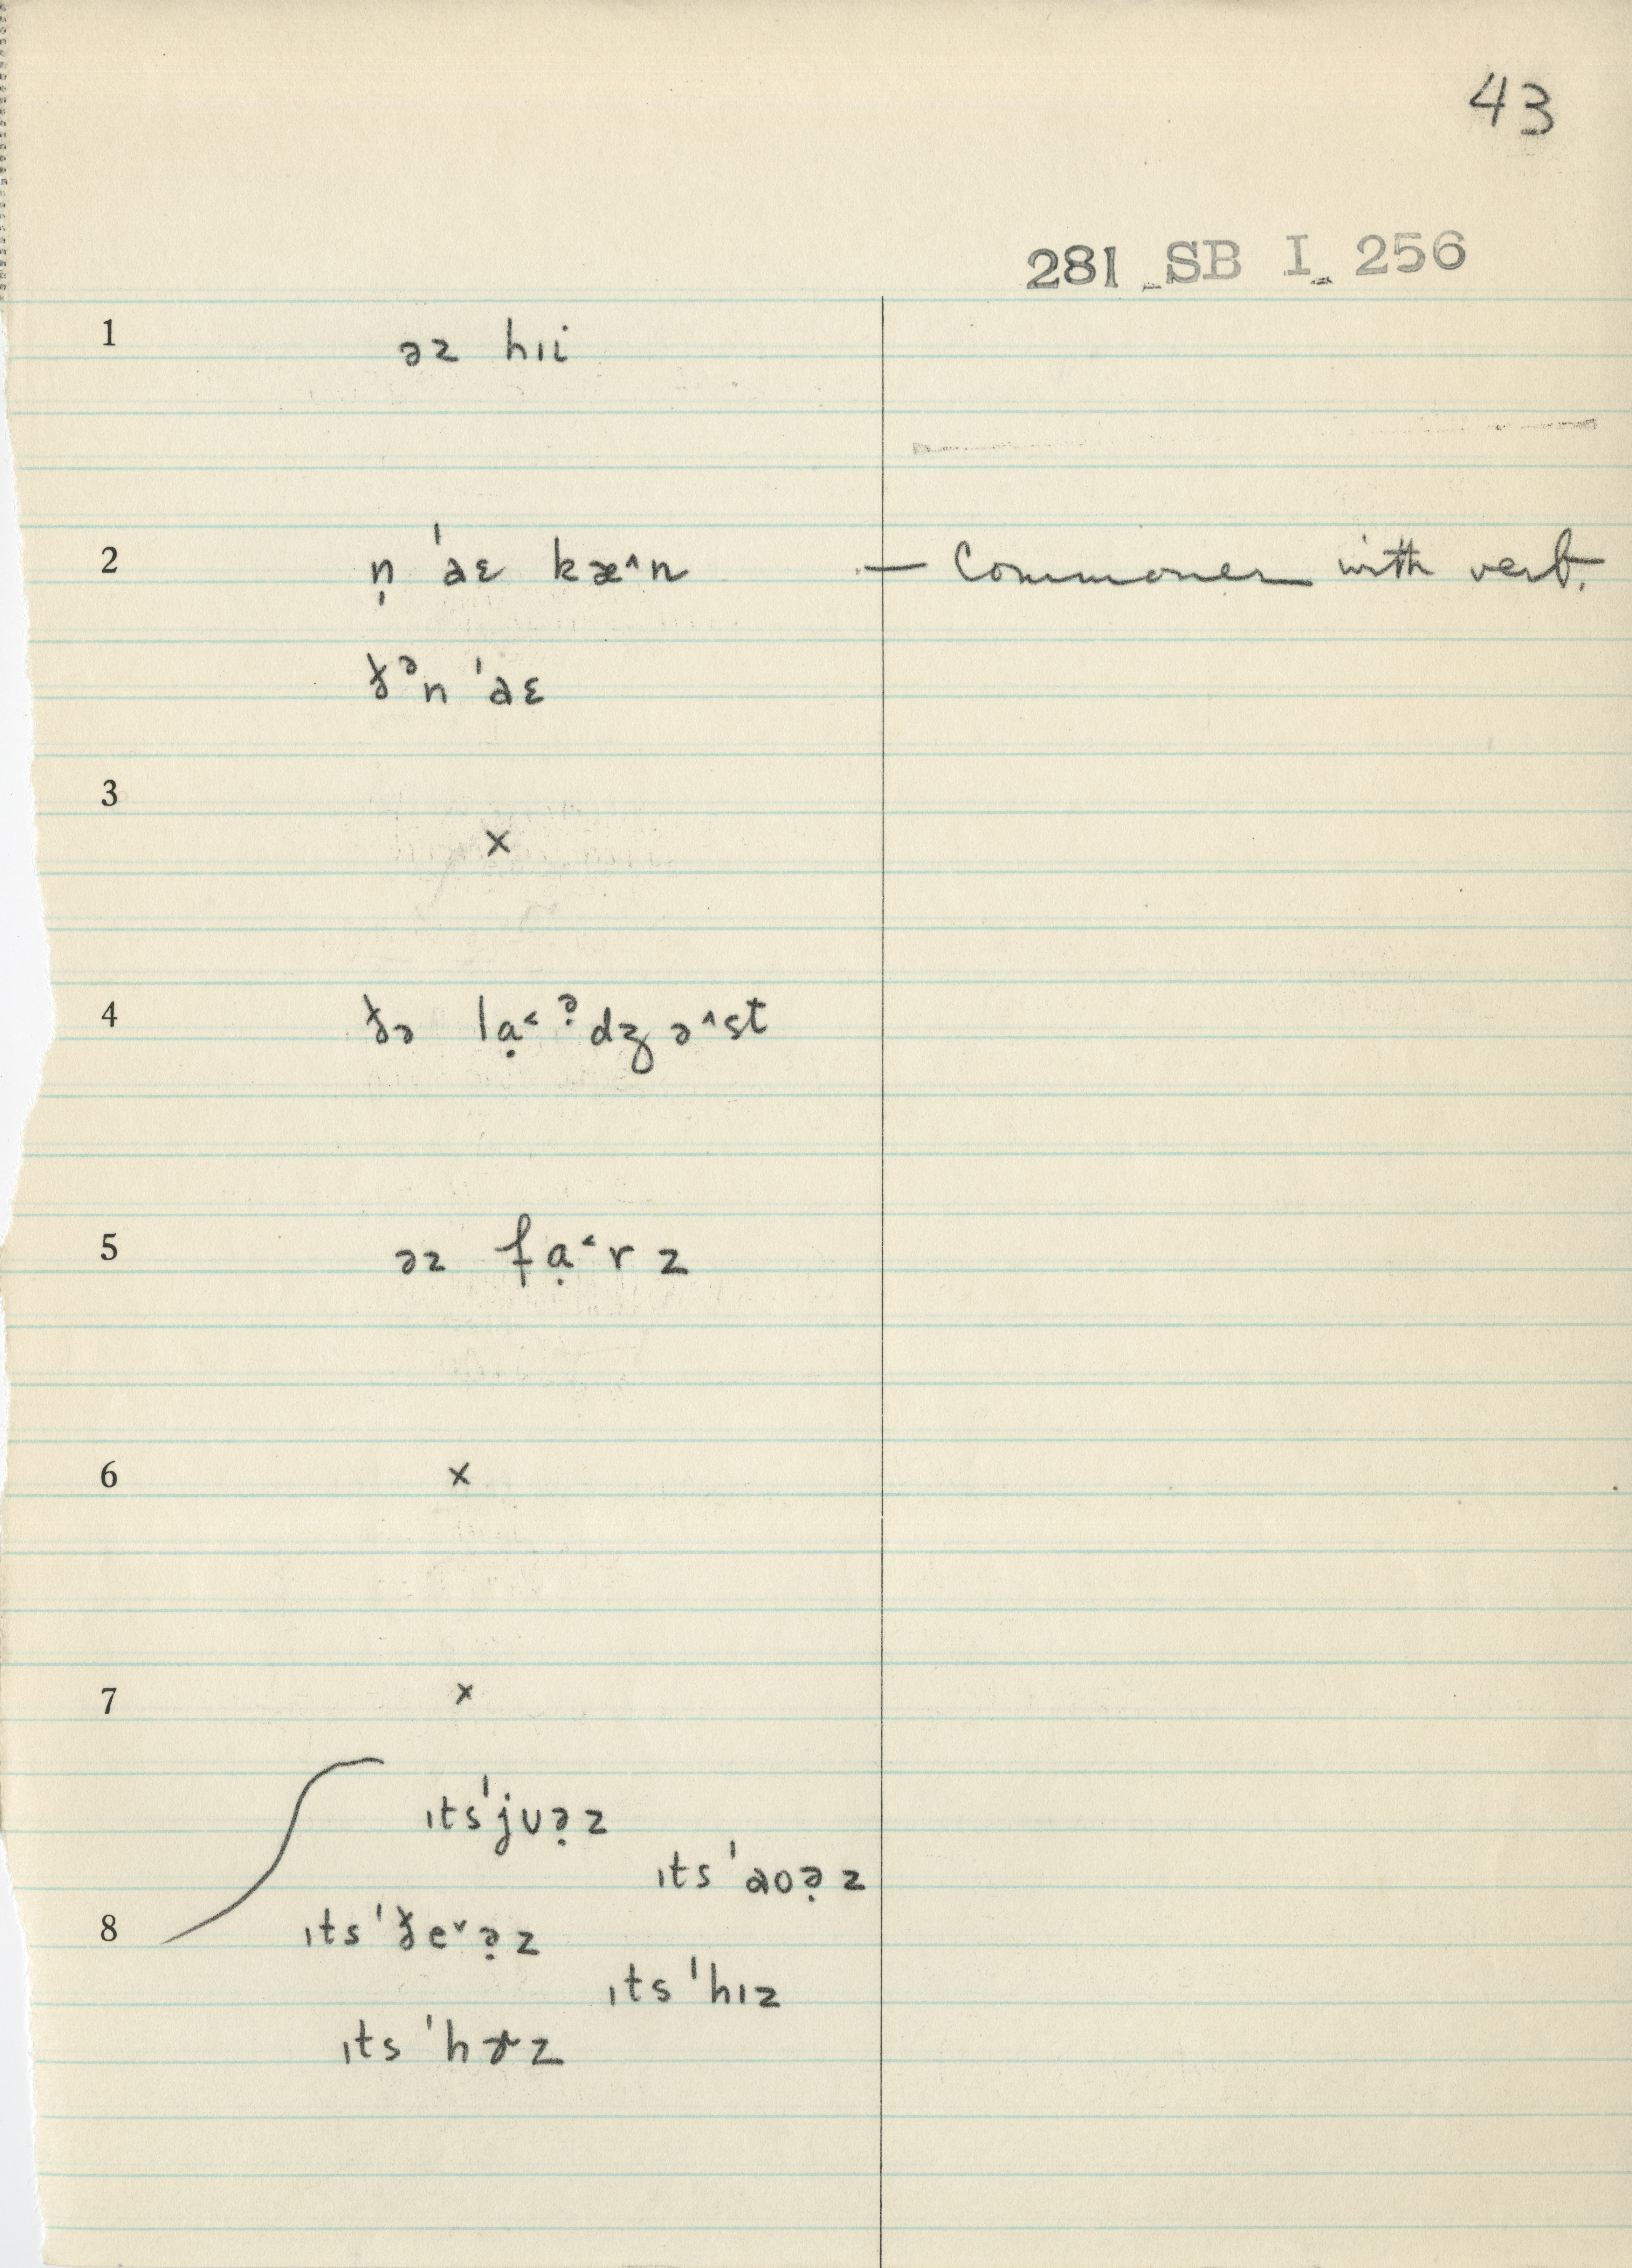 43
281 SB I 256
1 əz hɪi
2 n̩ ˈaɛ kæ^n — Commoner with verb.
ðᵊn ˈaɛ
3 ×
4 ðə lạ˂ ə̣dʒ ə^st
5 əz fạ˂r z
6 ×
7 ×
ɪtsˈjʊə̣z
ɪtsˈaoə̣z
8 ɪtsˈðeˇə̣z
ɪtsˈhɪz
ɪtsˈhɝz